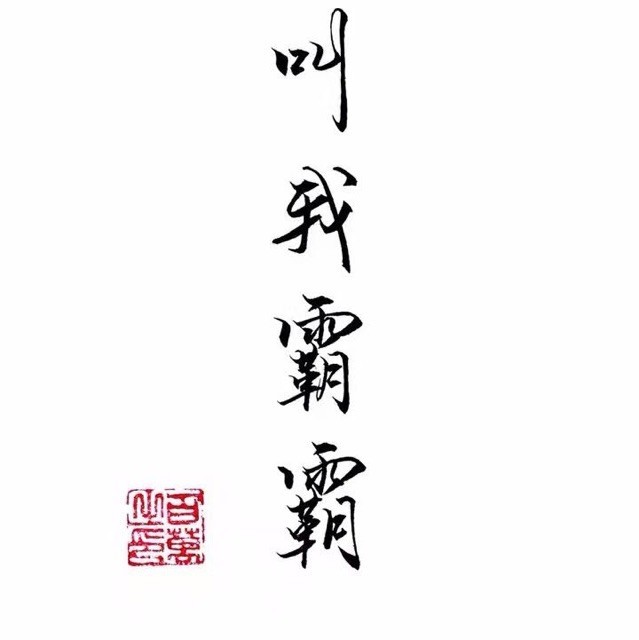 叫我霸霸